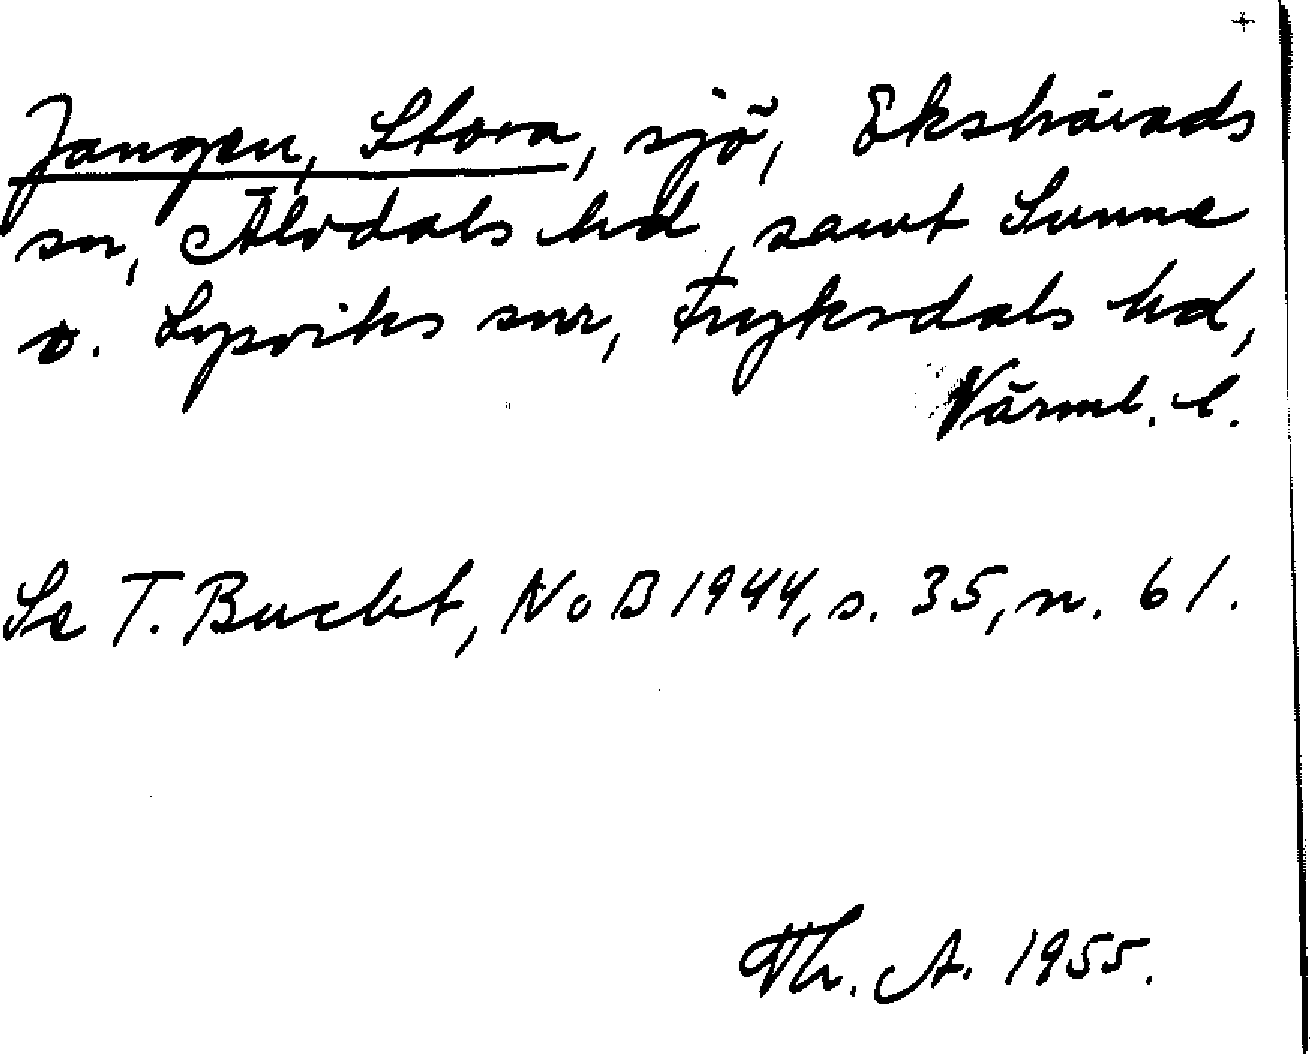 +
Jangen, Stora, sjö, Ekshärads
sn, Älvdals hd, samt Sunne
o. Lysviks snr, Fryksdals hd,
Värml. l.
Se T. Bucht, NoB 1944, s. 35, n. 61.
Th. A. 1955.